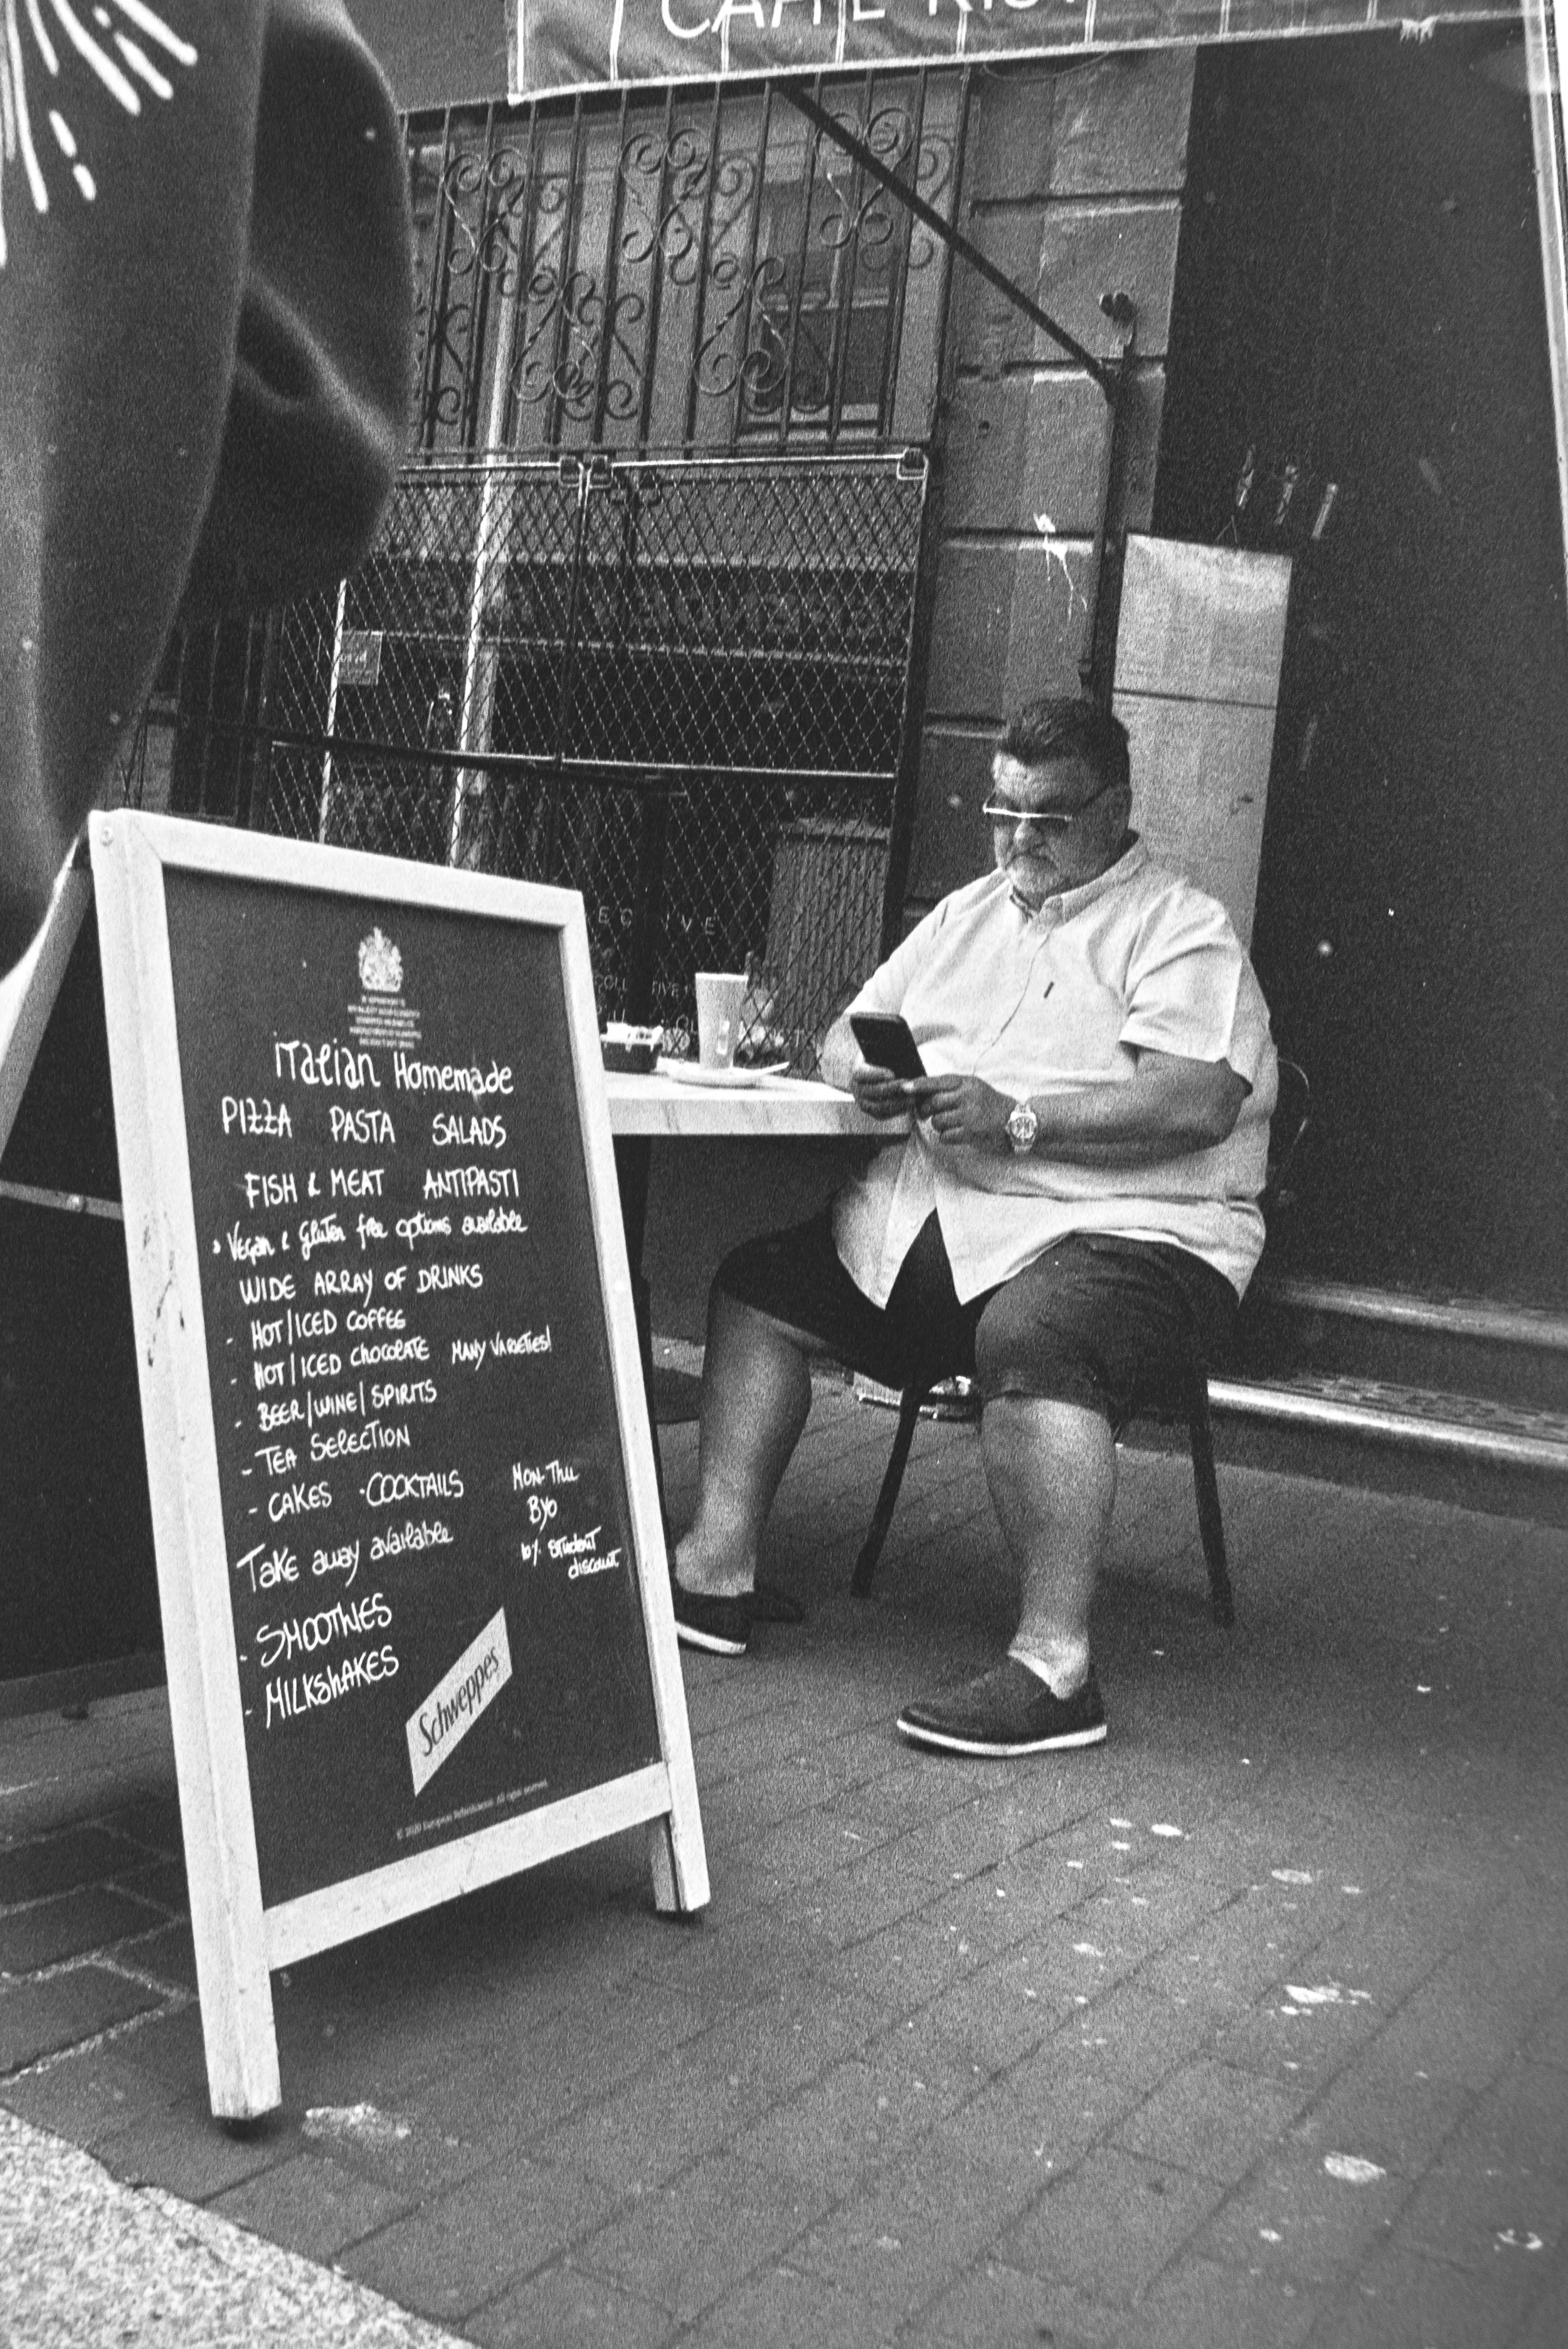 CAFFE
Italian Homemade
PIZZA PASTA SALADS
FISH & MEAT ANTIPASTI
Vegan & Gluten free options available
WIDE ARRAY OF DRINKS
- HOT/ICED COFFEE
- HOT/ICED CHOCOLATE MANY VARIETIES!
- BEER/WINE/SPIRITS
- TEA SELECTION
- CAKES · COCKTAILS
MON-THU
BYO
10% student
discount
Take away available
- SMOOTHIES
- MILKSHAKES
Schweppes
© 2020 European Refreshments. All rights reserved.